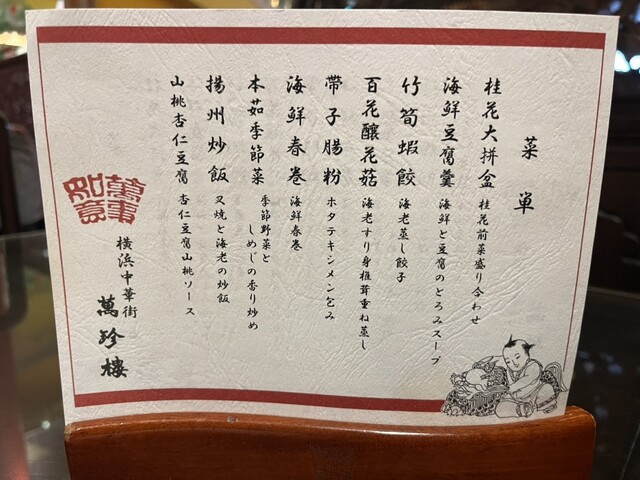 菜単
桂花大拼盆 桂花前菜盛り合わせ
海鮮豆腐羹 海鮮と豆腐のとろみスープ
竹筍蝦餃 海老蒸し餃子
百花釀花菇 海老すり身椎茸重ね蒸し
帶子腸粉 ホタテキシメン包み
海鮮春巻 海鮮春巻
本茹季節菜 季節野菜と
しめじの香り炒め
揚州炒飯 叉焼と海老の炒飯
山桃杏仁豆腐 杏仁豆腐山桃ソース
萬事
如意
横浜中華街
萬珍樓